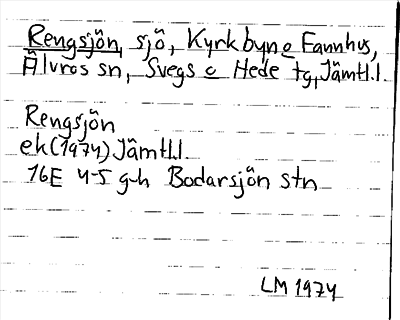 Rengsjön, sjö, Kyrkbyn o Fannhus,
Älvros sn, Svegs o Hede tg, Jämtl.l.
Rengsjön
ek(1974) Jämtl.l
16E 4-5 g-h Bodarsjön stn
LM 1974